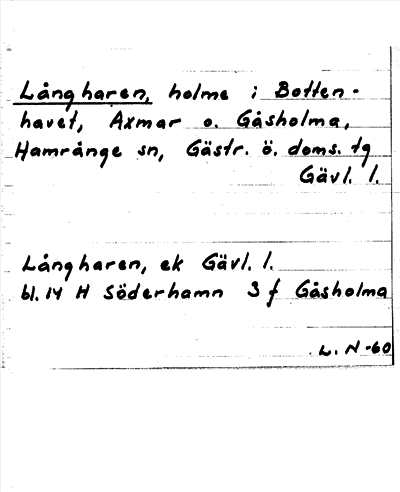 Långharen, holme i Botten-
havet, Axmar o. Gåsholma,
Hamrånge sn, Gästr. ö. doms. tg
Gävl. l.
Långharen, ek Gävl. l.
bl. 14 H Söderhamn 3 f Gåsholma
L. N-60